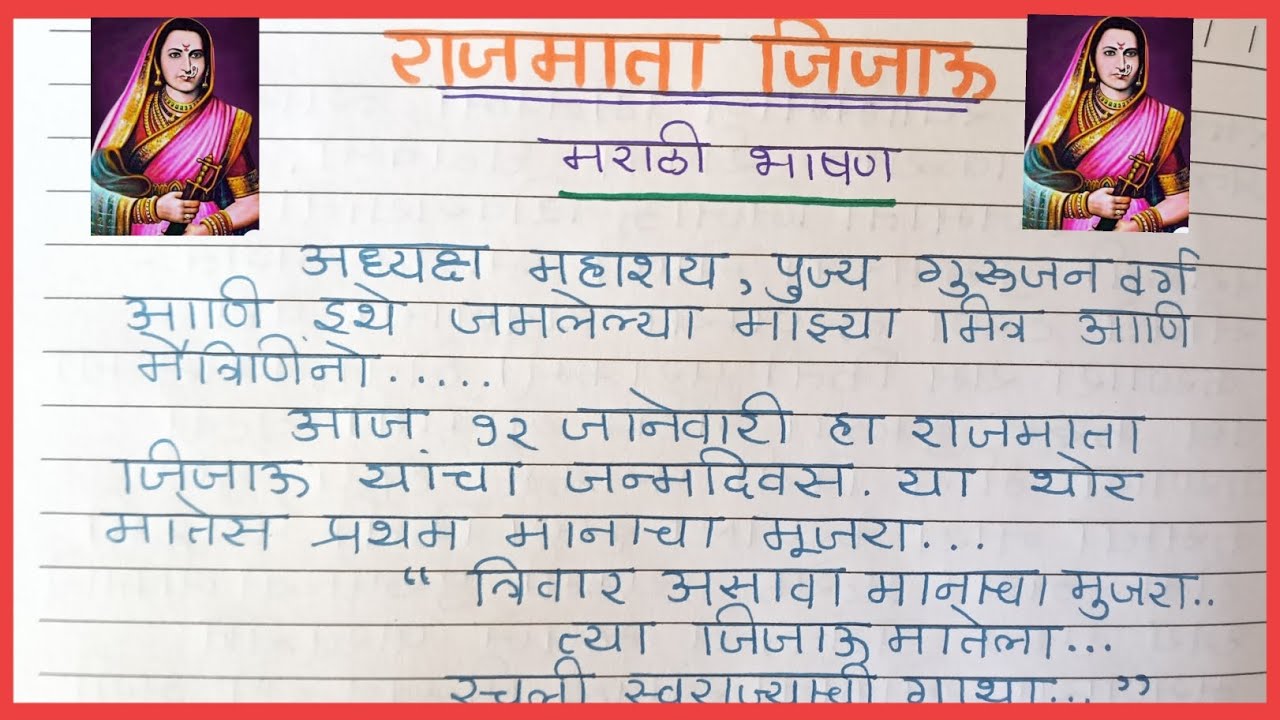 राजमाता जिजाऊ
मराठी भाषण
अध्यक्ष महाशय, पुज्य गुरुजन वर्ग
आणि इथे जमलेल्या माझ्या मित्र आणि
मैत्रिणिंनो.....
आज १२ जानेवारी हा राजमाता
जिजाऊ यांचा जन्मदिवस. या थोर
मातेस प्रथम मानाचा मूजरा...
“ त्रिवार असावा मानाचा मुजरा..
त्या जिजाऊ मातेला...
रचली स्वराज्याची गाथा... ”